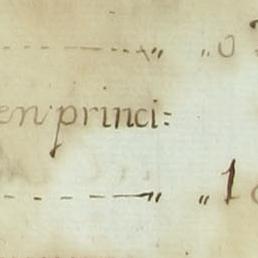 ---------„ „0
en princi=
- - - - - —„ „1